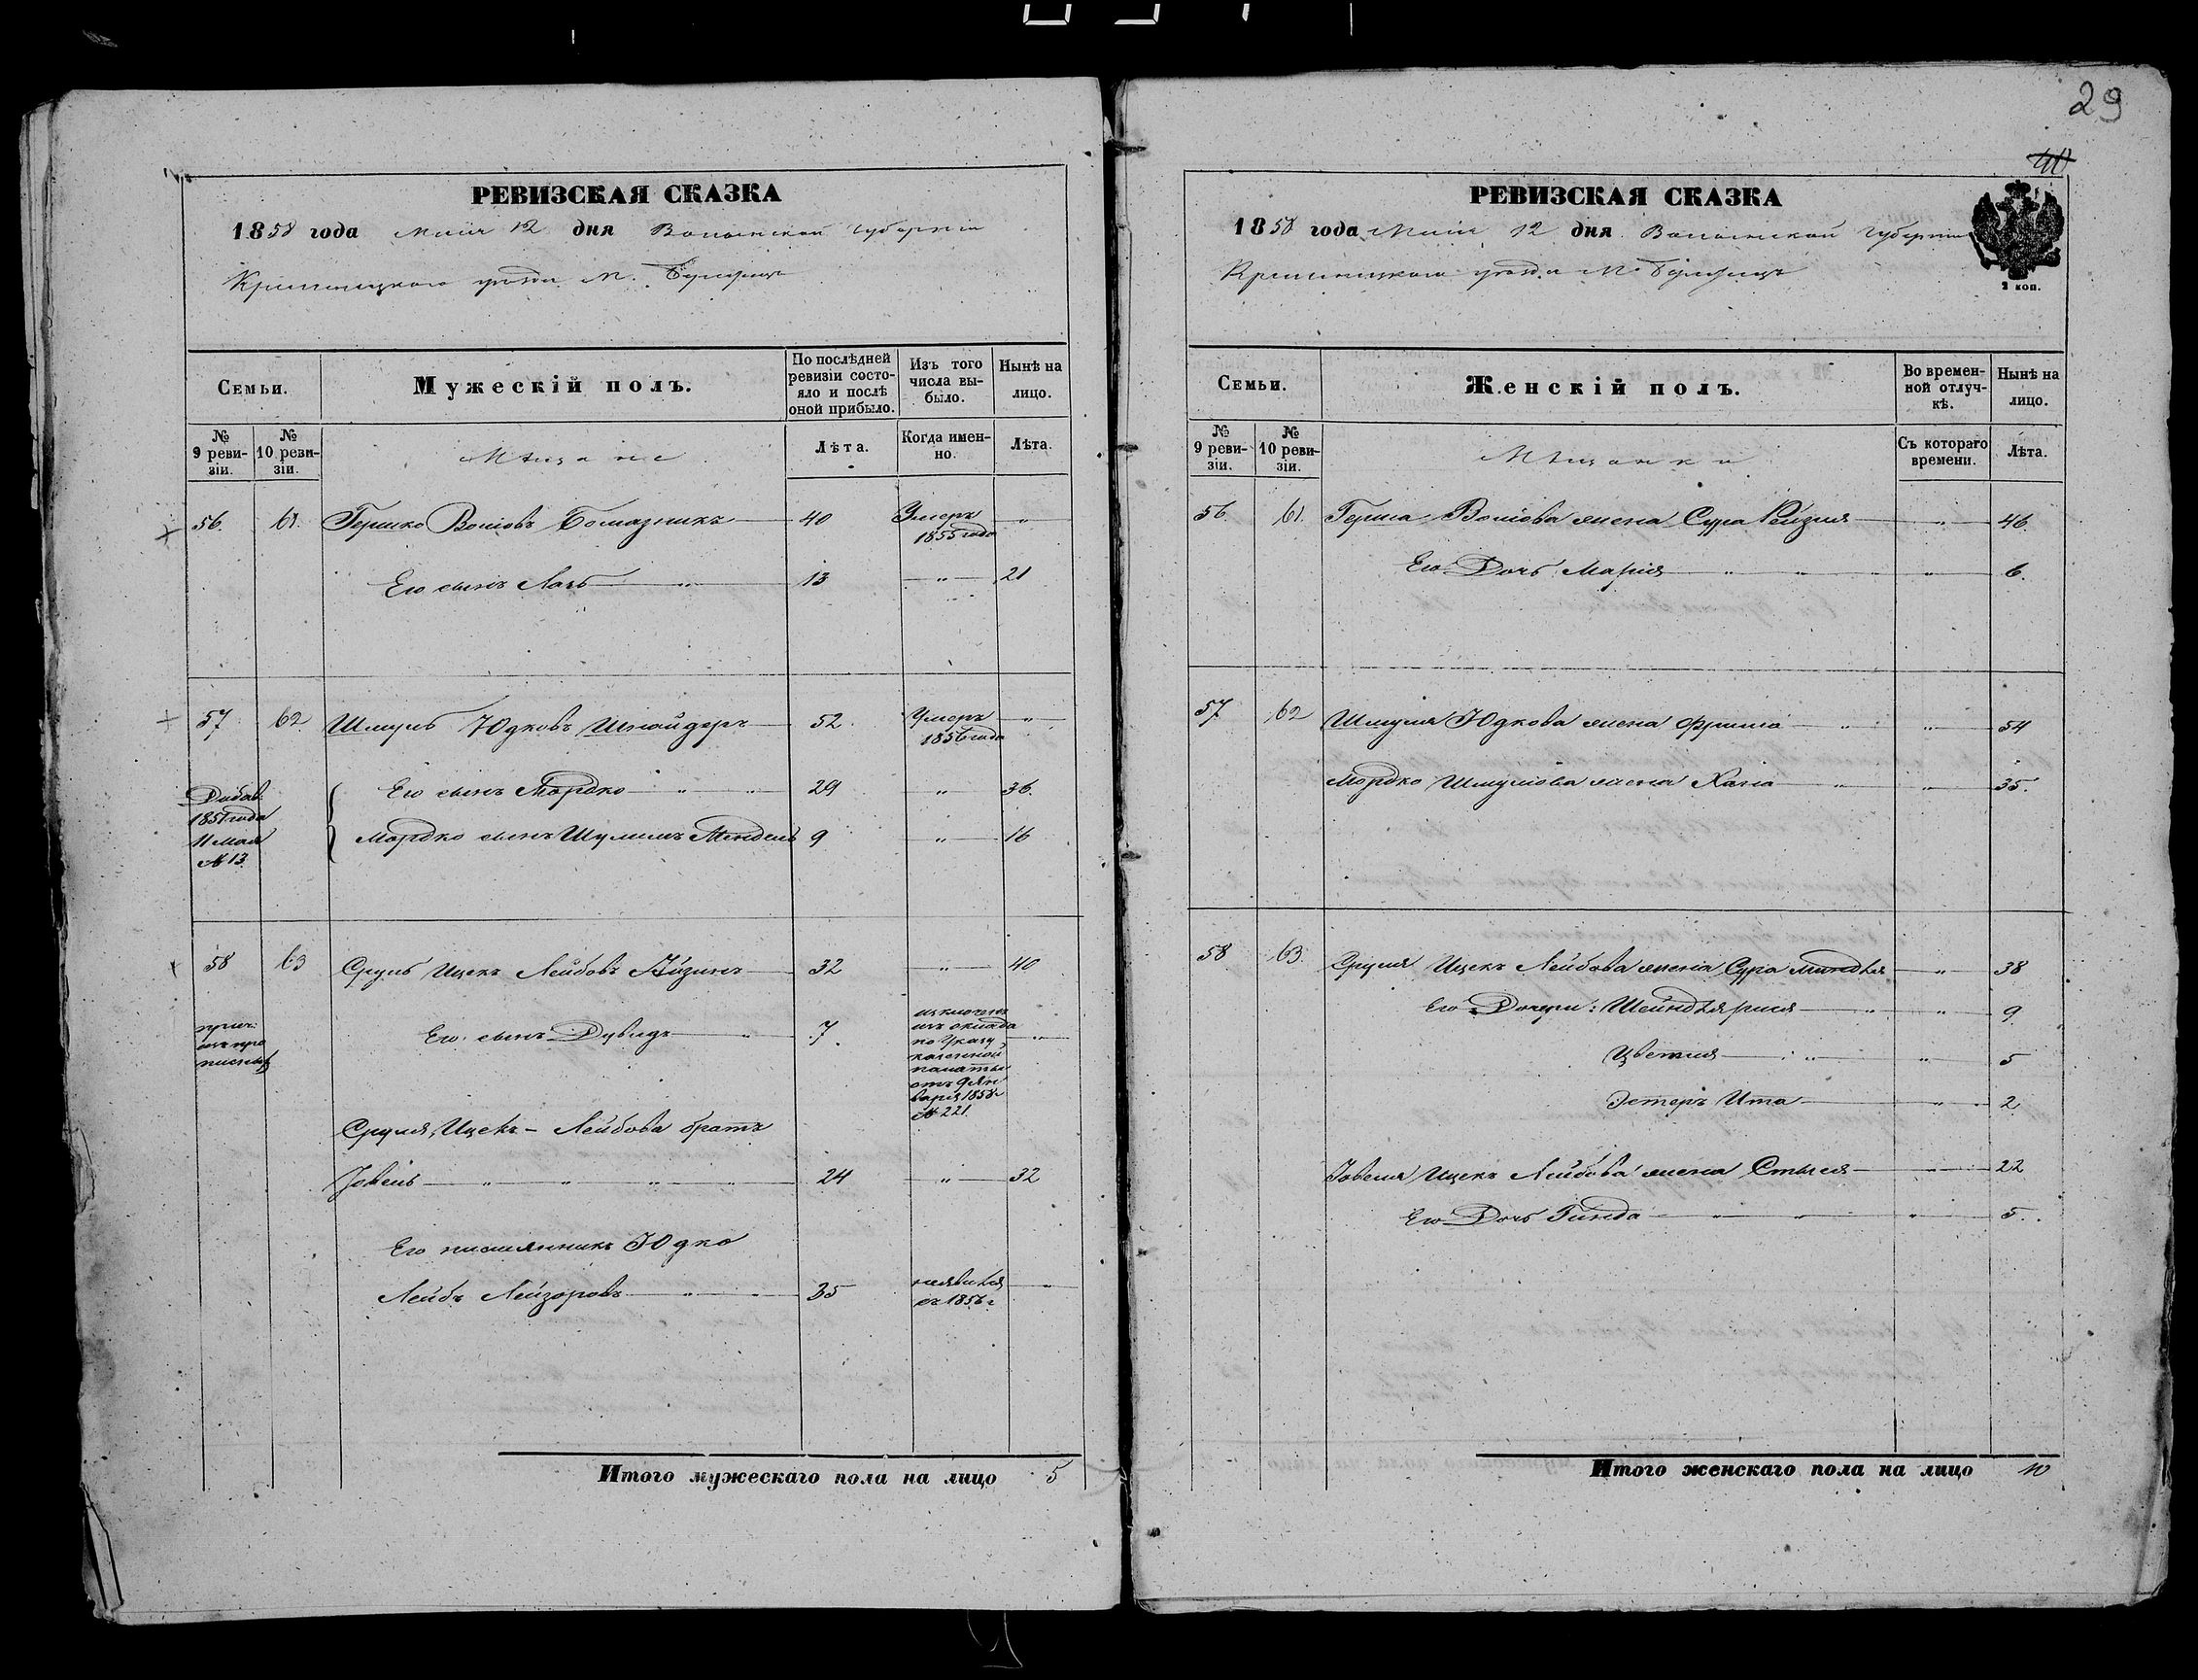 29
40
РЕВИЗСКАЯ СКАЗКА
1858 года Маія 12 дня Волынской губерніи
Кременецкого уезда М.
Семьи.
Мужескій полъ.
По послѣдней ревизіи состо-
яло и послѣ
оной прибыло.
Изъ того
числа вы-
было.
Нынѣ на
лицо.
№
9 реви-
зіи.
№
10 реви-
зіи.
Мещане
Лѣта.
Когда имен-
но.
Лѣта.
56. 61. Гершко Волков Бомазник 40 Умеръ 1855 года "
Его сынъ Лазь " 13 " 21
57 62. Шмуль Юдковъ Шнайдеръ 52 Умеръ 1856 года "
Добав.
1851 года
11 мая
№ 13.
Его сынъ Мордко " " 29 " 36.
Мордко сынъ Шулимъ Мендель 9 " 16
58 63 Сруль Ицекъ Лейбовъ Айзинъ 32 " 40
Его сынъ Дувидъ " 7. "
исключенъ
изъ оклада
по Указу
казенной
палаты
отъ 9 Ян
варія 1858 г
№ 221.
Сруля, Ицекъ - Лейбова братъ
Іовель " " " " 24 " 32
Его племянникъ Юдко
Лейбъ Лейзоровъ " " 35 неявился съ 1856 г "
Итого мужескаго пола на лицо 5
РЕВИЗСКАЯ СКАЗКА
1858 года Маія 12 дня Волынской Губерніи
Кременецкого уезда М.
2 коп.
Семьи.
Женскій полъ.
Во времен-
ной отлуч-
кѣ.
Нынѣ на
лицо.
№
9 реви-
зіи.
№
10 реви-
зіи.
Мещанки
Съ котораго
времени.
Лѣта.
56. 61. Герша Волкова жена Сура Рейзля " 46.
Его Дочь Марія " " " " 6.
57 62 Шмуля Юдкова жена Фрима " " 54
Мордко Шмулова жена Хана " " 35.
58 63. Сруля Ицекъ Лейбова жена Сура Миндля " 38
Его Дочери: Шейндля " " 9
Цветля " " 5
Эстеръ Ита " 2
Іовеля Ицекъ Лейбова жена Стыся " 22
Его Дочь Гинда " " " 5.
Итого женскаго пола на лицо 10